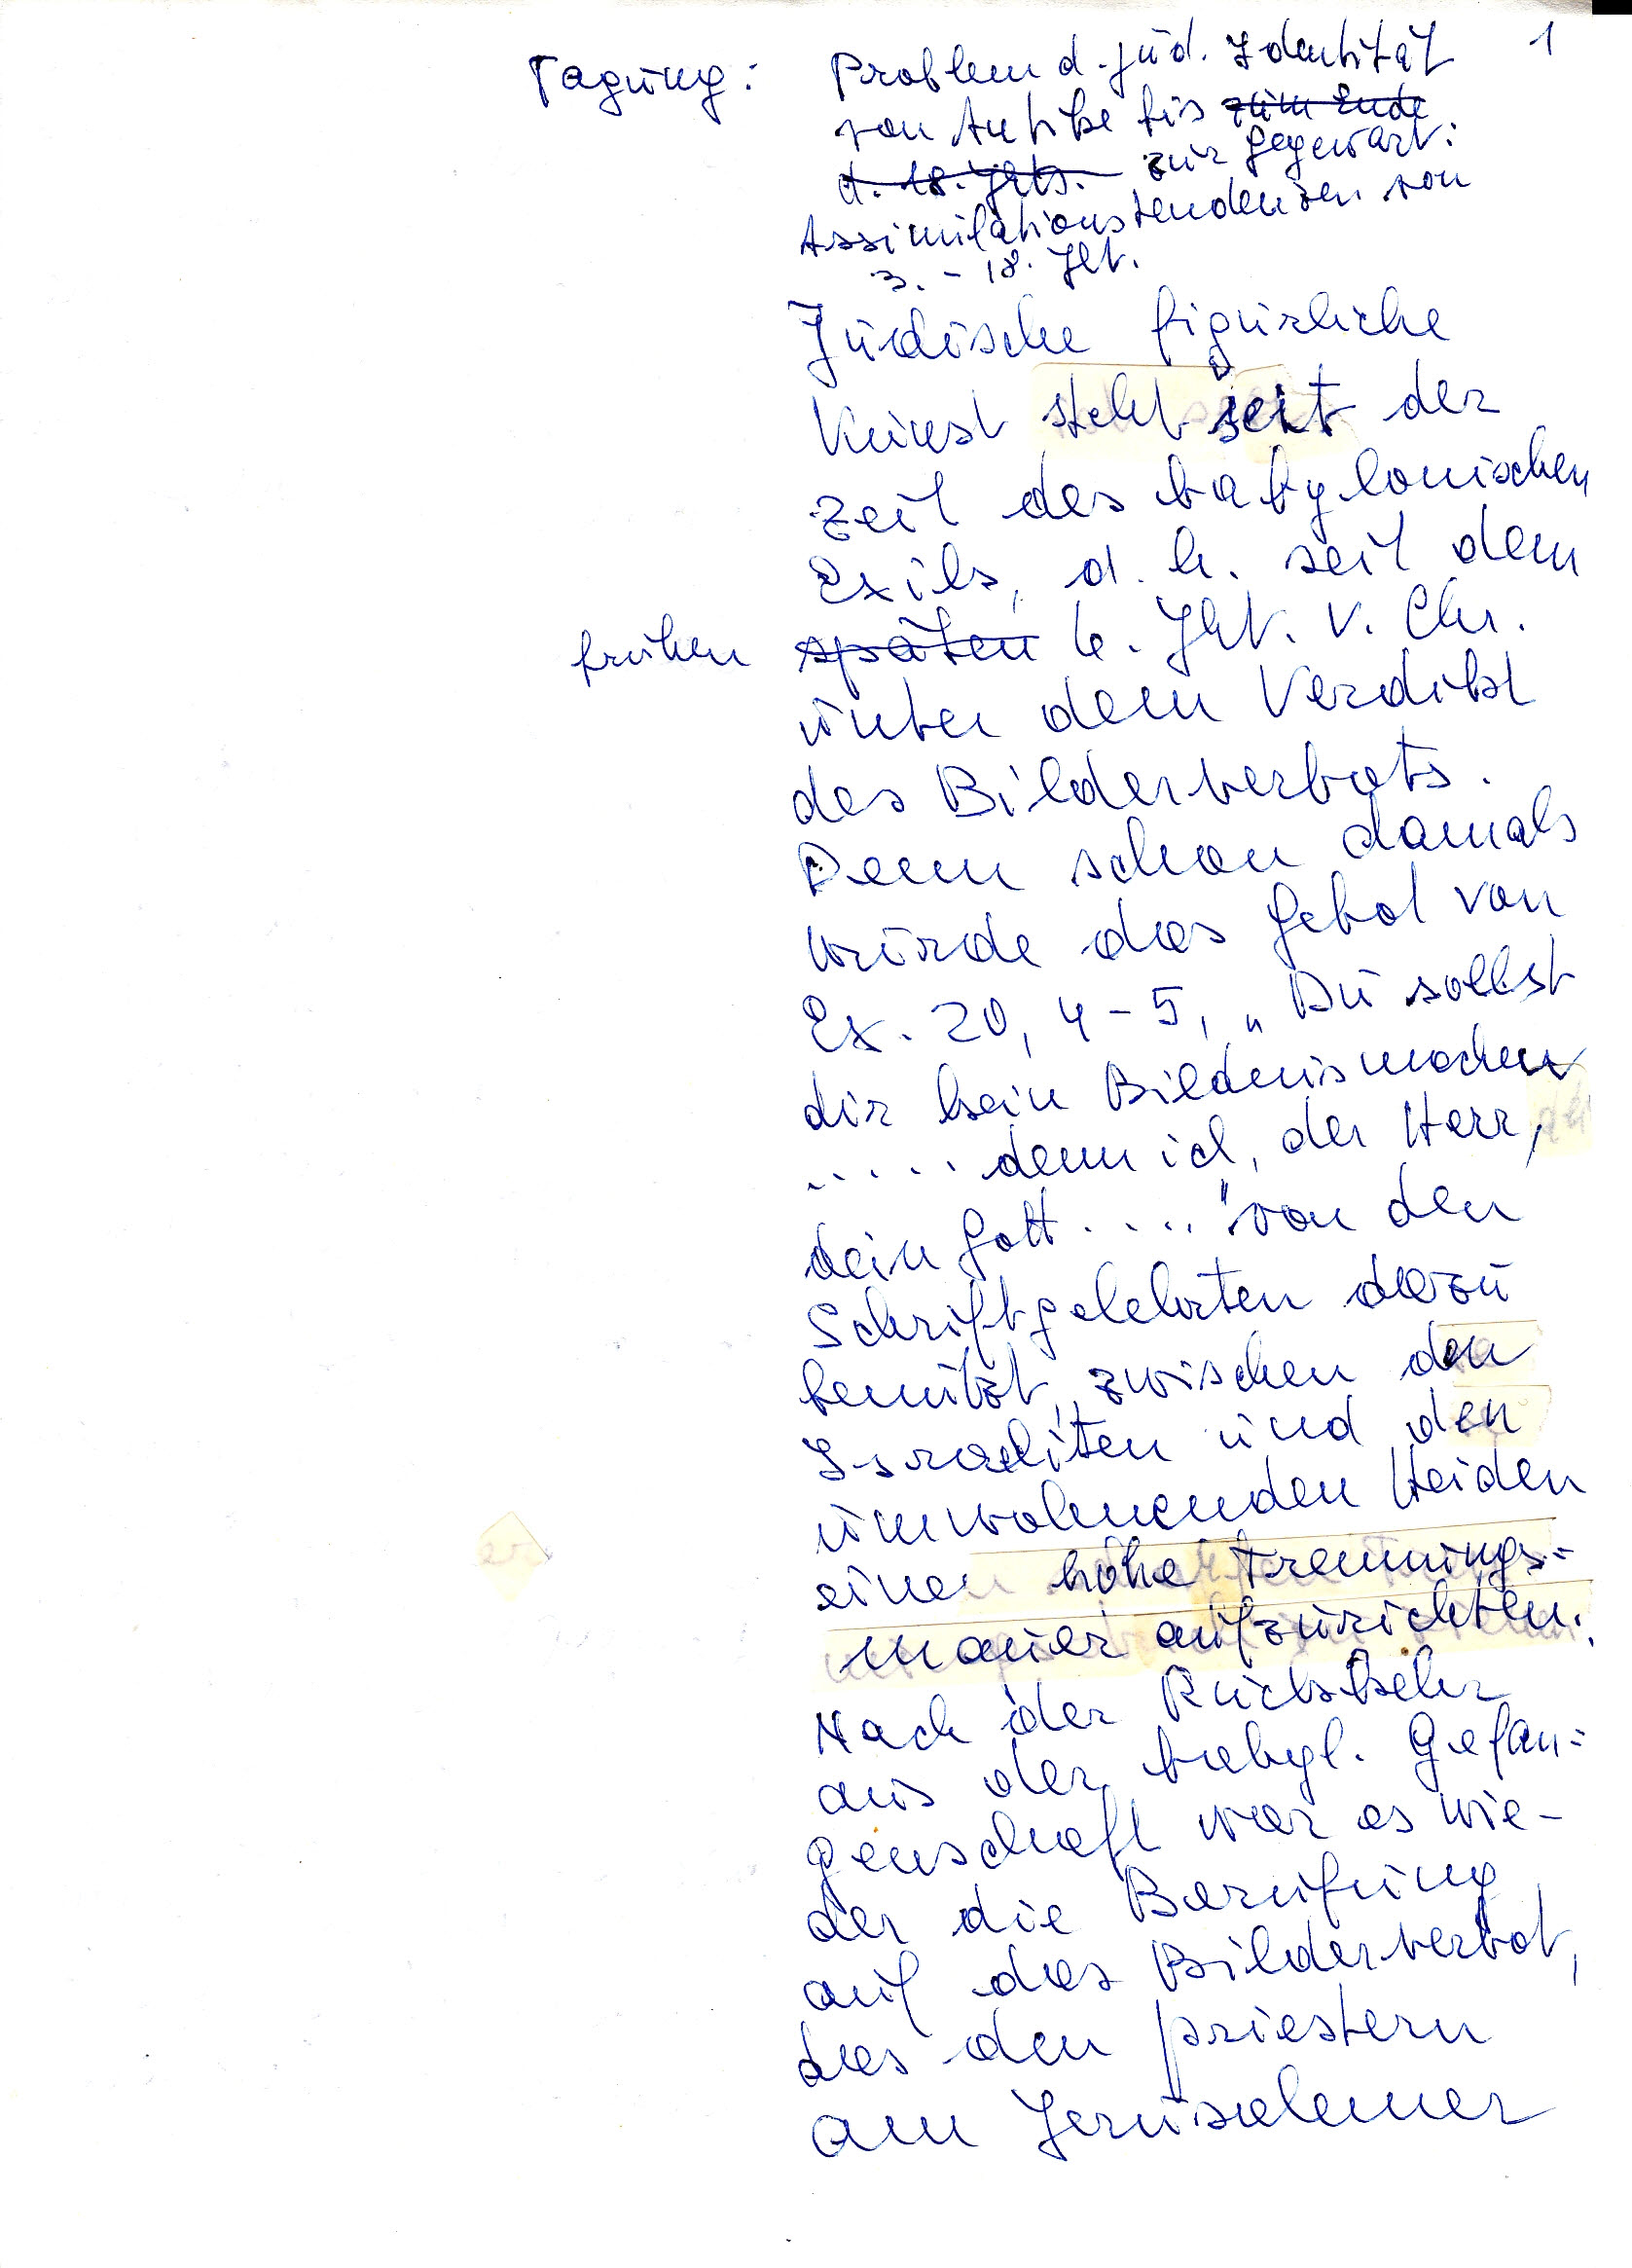 1
Tagung: Problem d. jüd. Identität
von Antike bis zum Ende
d. 18. Jhts. zur Gegewart:
Assimilationstendenzen von
3. - 18. Jht.
Jüdische figürliche
Kunst steht seit der
Zeit des babylonischen
Exils, d. h. seit dem
frühen späten 6. Jht. v. Chr.
unter dem Verdikt
des Bilderverbots.
Denn schon damals
wurde das Gebot von
Ex. 20, 4-5, „Du sollst
dir kein Bildnis machen
..... denn ich, der Herr,
dein Gott ...." von den
Schriftgelehrten dazu
benützt, zwischen den
Israeliten und den
umwohnenden Heiden
eine hohe Trennungs=
mauer aufzurichten.
Nach der Rückkehr
aus der babyl. Gefan=
genschaft war es wie-
der die Berufung
auf das Bilderverbot,
das den Priestern
am Jerusalemer